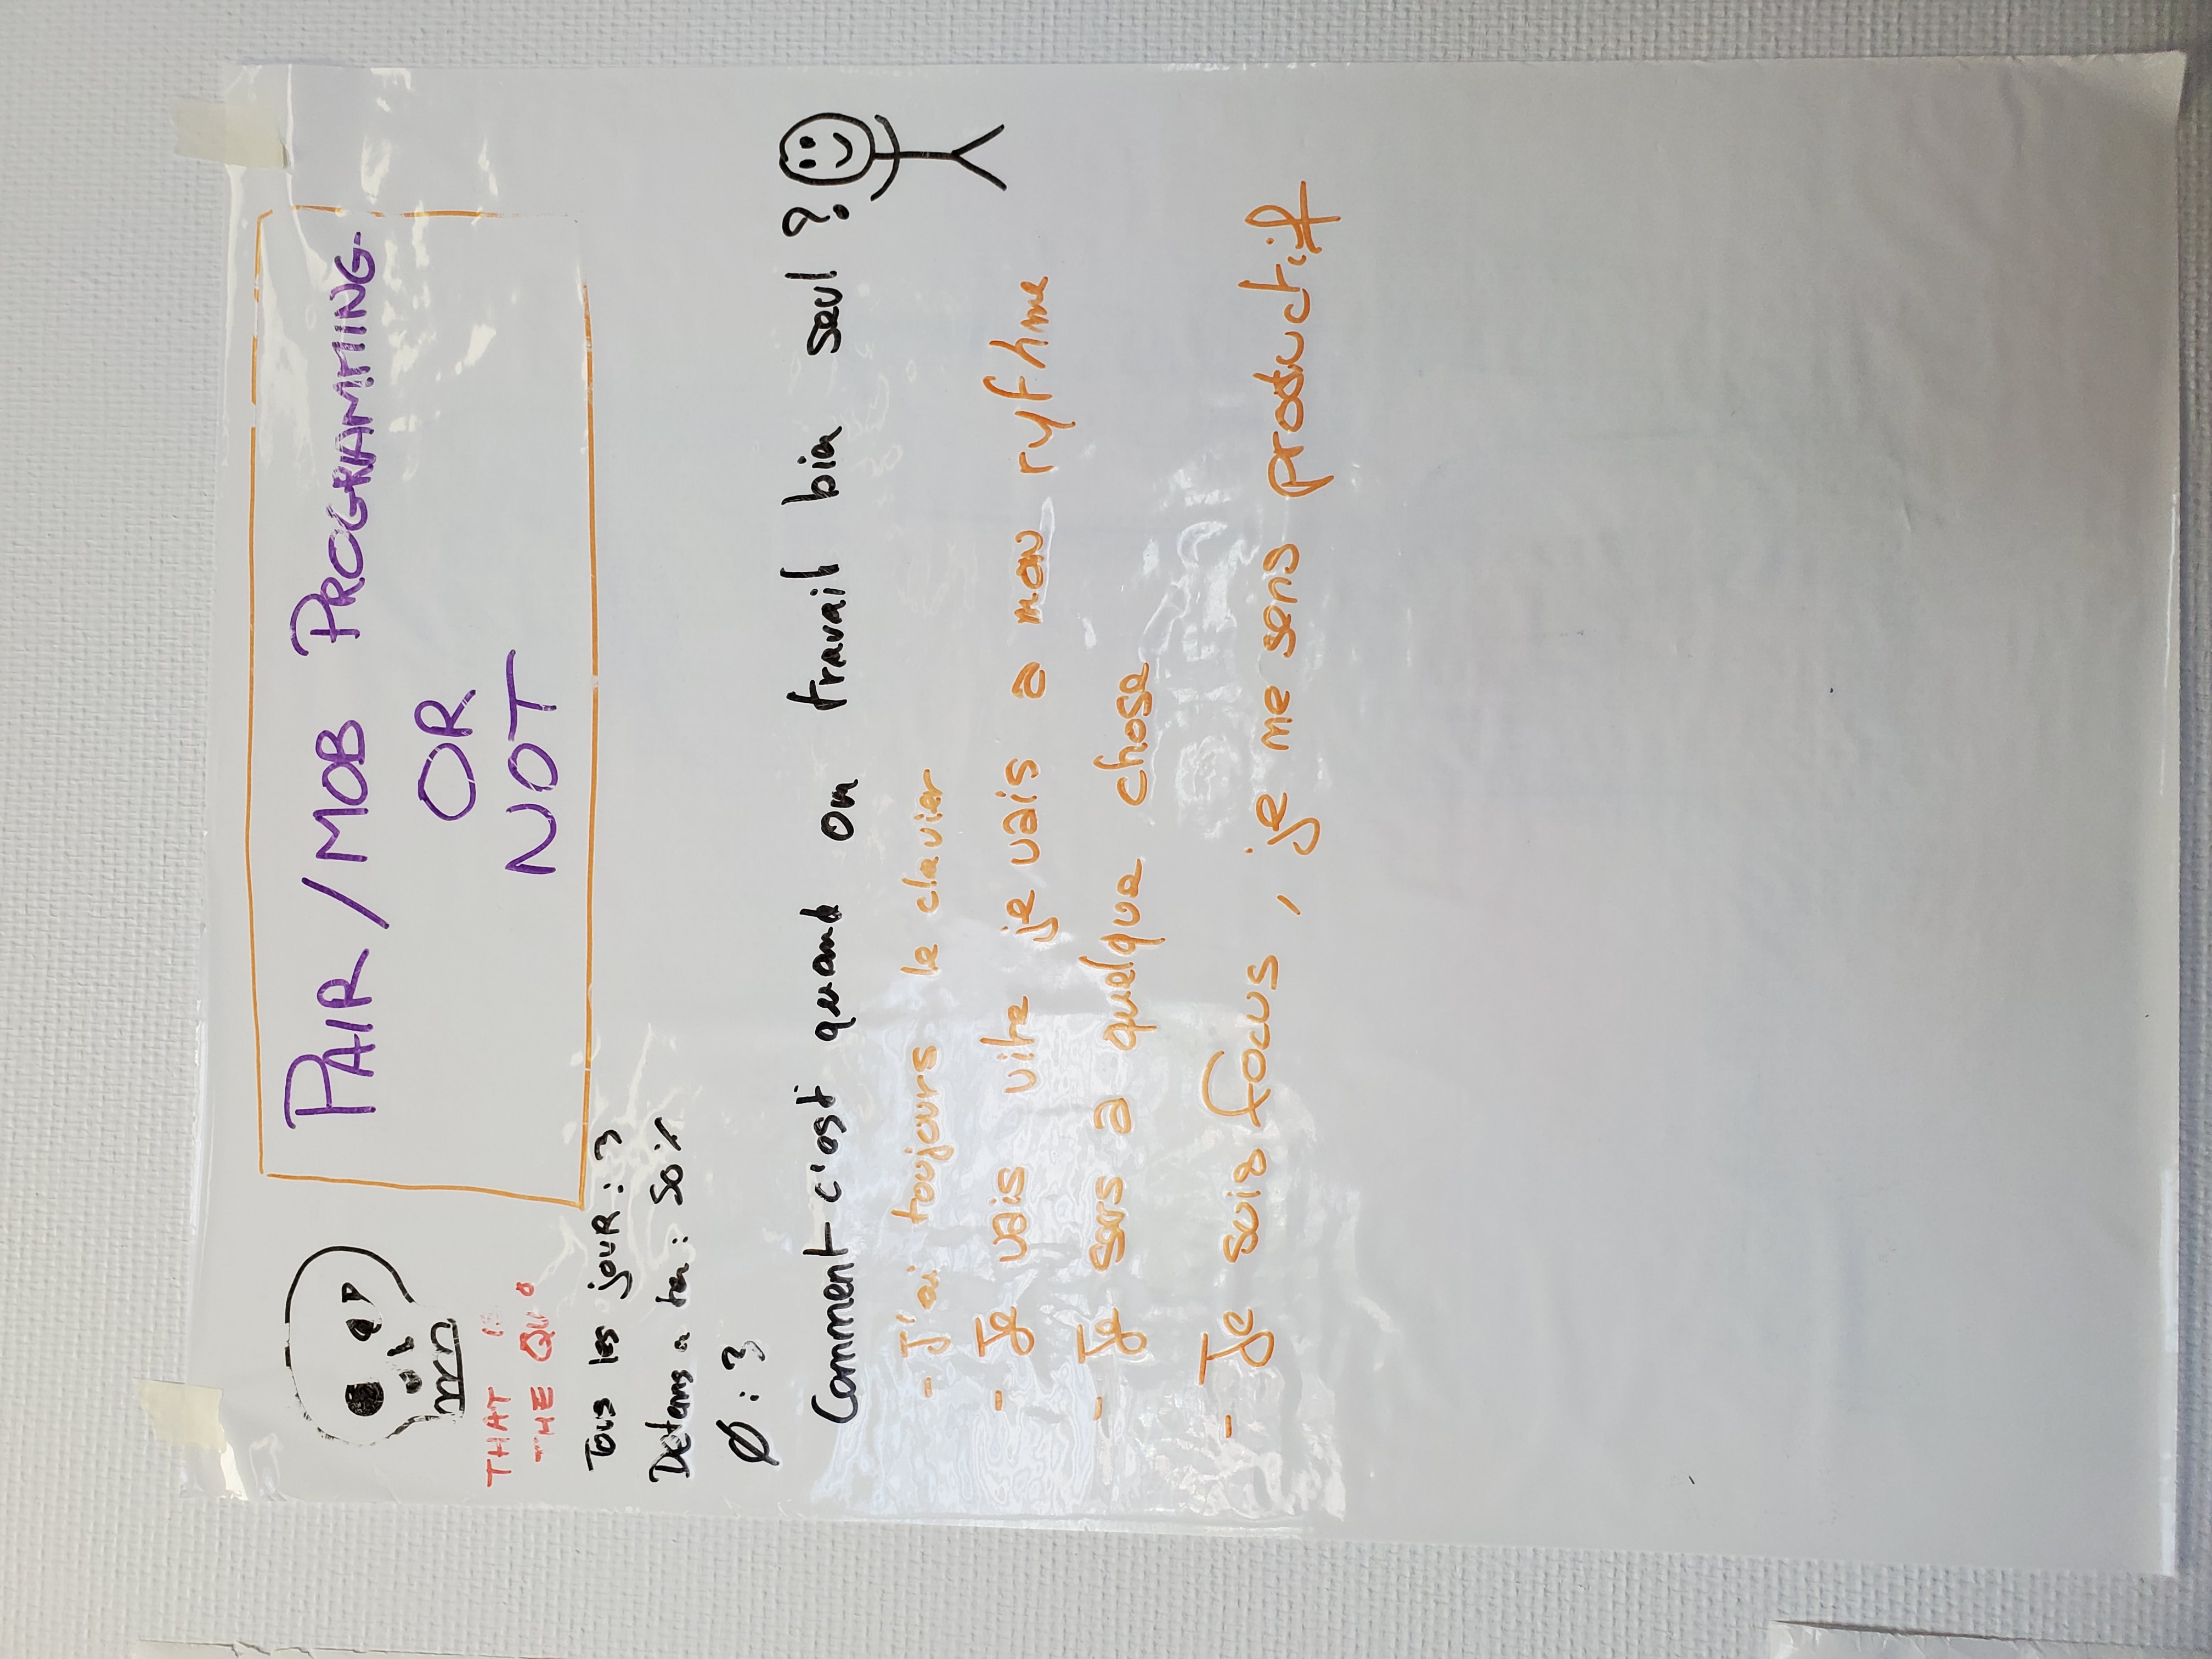 PAIR / MOB PROGRAMMING
OR
NOT
THAT IS
THE QU
Tous les jouR : 3
De temps : 50 %
Ø : 3
Comment c'est quand on travail bien seul ?
- J'ai toujours le clavier
- Je vais vite je vais a mon rythme
- Je sers a quelque chose
- Je suis focus, je me sens productif